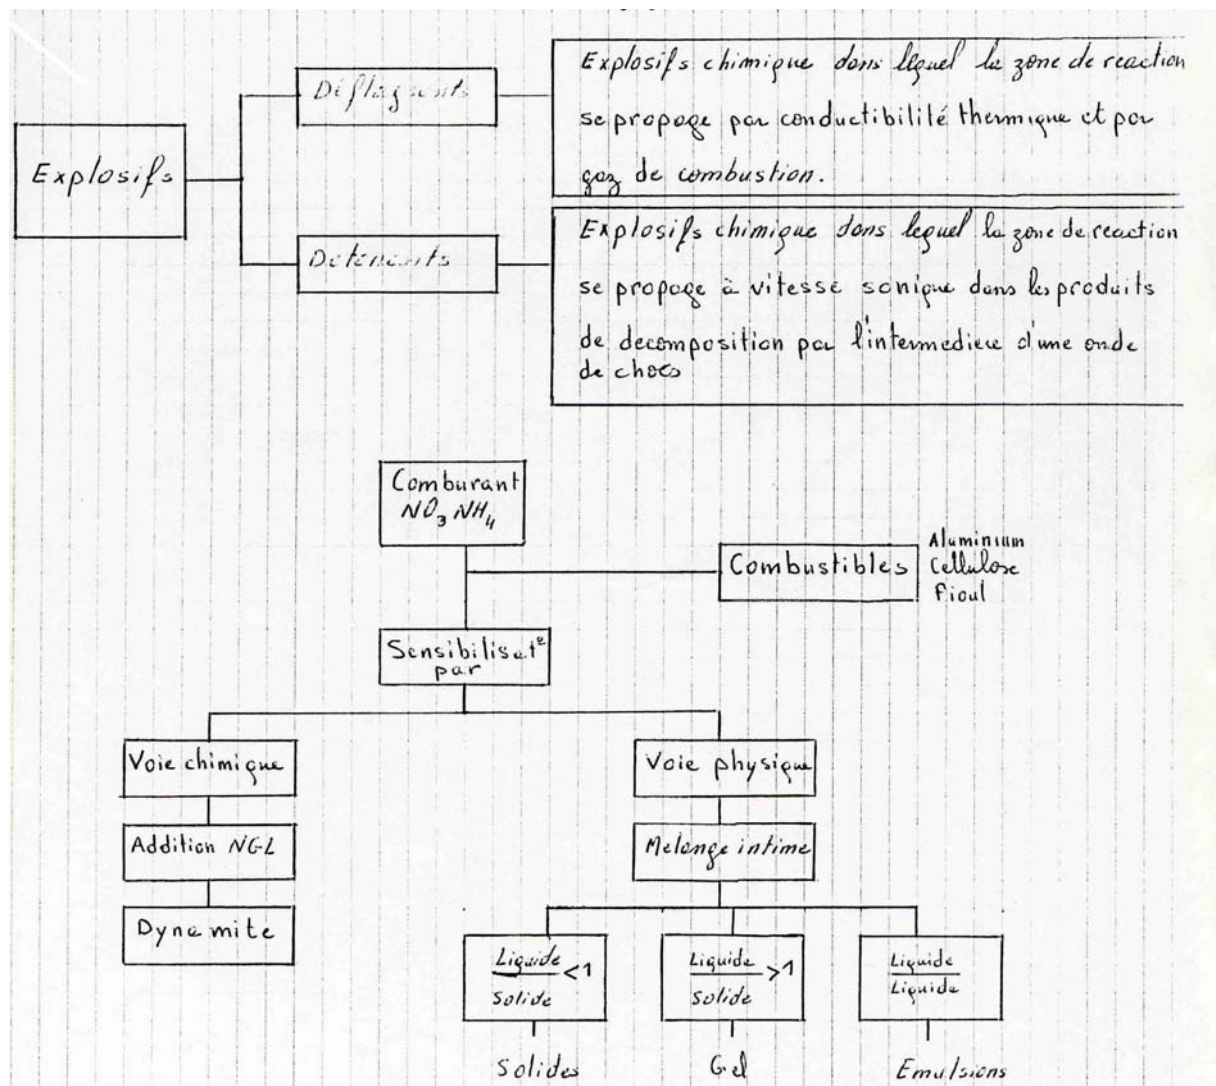 Explosifs
Déflagrants
Explosifs chimique dans lequel la zone de reaction
se propage par conductibilité thermique et par
gaz de combustion.
Detonants
Explosifs chimique dans lequel la zone de reaction
se propage à vitesse sonique dans les produits
de decomposition par l'intermediere d'une onde
de chocs
Comburant
NO₃ NH₄
Combustibles
Aluminium
Cellulose
Fioul
Sensibilisat°
par
Voie chimique
Voie physique
Addition NGL
Melange intime
Dynamite
Liquide
Solide <1
Liquide
Solide >1
Liquide
Liquide
Solides
Gel
Emulsions